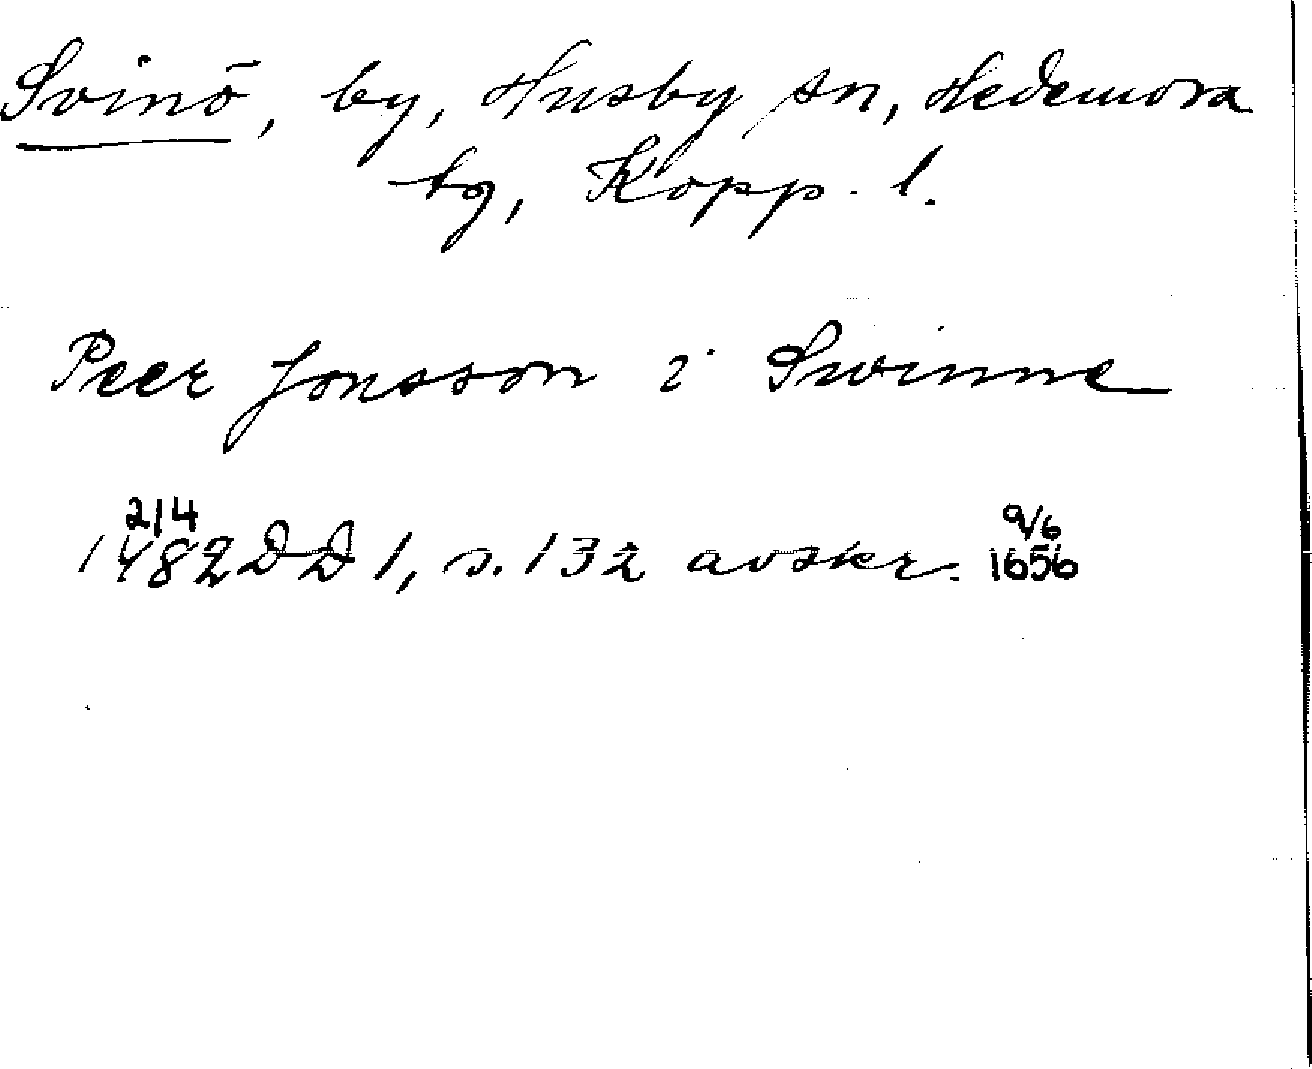 Svinö, by, Husby sn, Hedemora
tg, Kopp. l.
Peer Jonsson i Swinne
2/4
1482 DD 1, s. 132 avskr. 9/6 1656